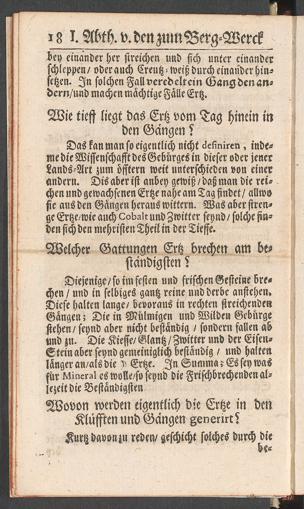 18 I. Abth. v. den zum Berg-Werck
bey einander her streichen und sich unter einander
schleppen / oder auch Creutz-weiß durch einander hin-
setzen. In solchen Fall veredelt ein Gang den an-
dern / und machen mächtige Fälle Ertz.
Wie tieff liegt das Ertz vom Tag hinein in
den Gängen?
Das kan man so eigentlich nicht definiren, inde-
me die Wissenschafft des Gebürges in dieser oder jener
Lands-Art zum öfftern weit unterschieden von einer
andern. Dis aber ist anbey gewiß / daß man die rei-
chen und gewachsenen Ertze nahe am Tag findet / allwo
sie aus den Gängen heraus wittern. Was aber stren-
ge Ertze / wie auch Cobalt und Zwitter seynd / solche fin-
den sich den mehristen Theil in der Tieffe.
Welcher Gattungen Ertz brechen am be-
ständigsten?
Diejenige / so im festen und frischen Gesteine bre-
chen / und in selbiges gantz reine und derbe anstehen.
Diese halten lange / bevoraus in rechten streichenden
Gängen; Die in Mülmigen und Wilden Gebürge
stehen / seynd aber nicht beständig / sondern fallen ab
und zu. Die Kiesse / Glantz / Zwitter und der Eisen-
Stein aber seynd gemeiniglich beständig / und halten
länger an / als die Ertze. In Summa; Es sey was
für Mineral es wolle / so seynd die Frischbrechenden al-
lezeit die Beständigsten
Wovon werden eigentlich die Ertze in den
Klüfften und Gängen generirt?
Kurtz davon zu reden / geschicht solches durch die
be-